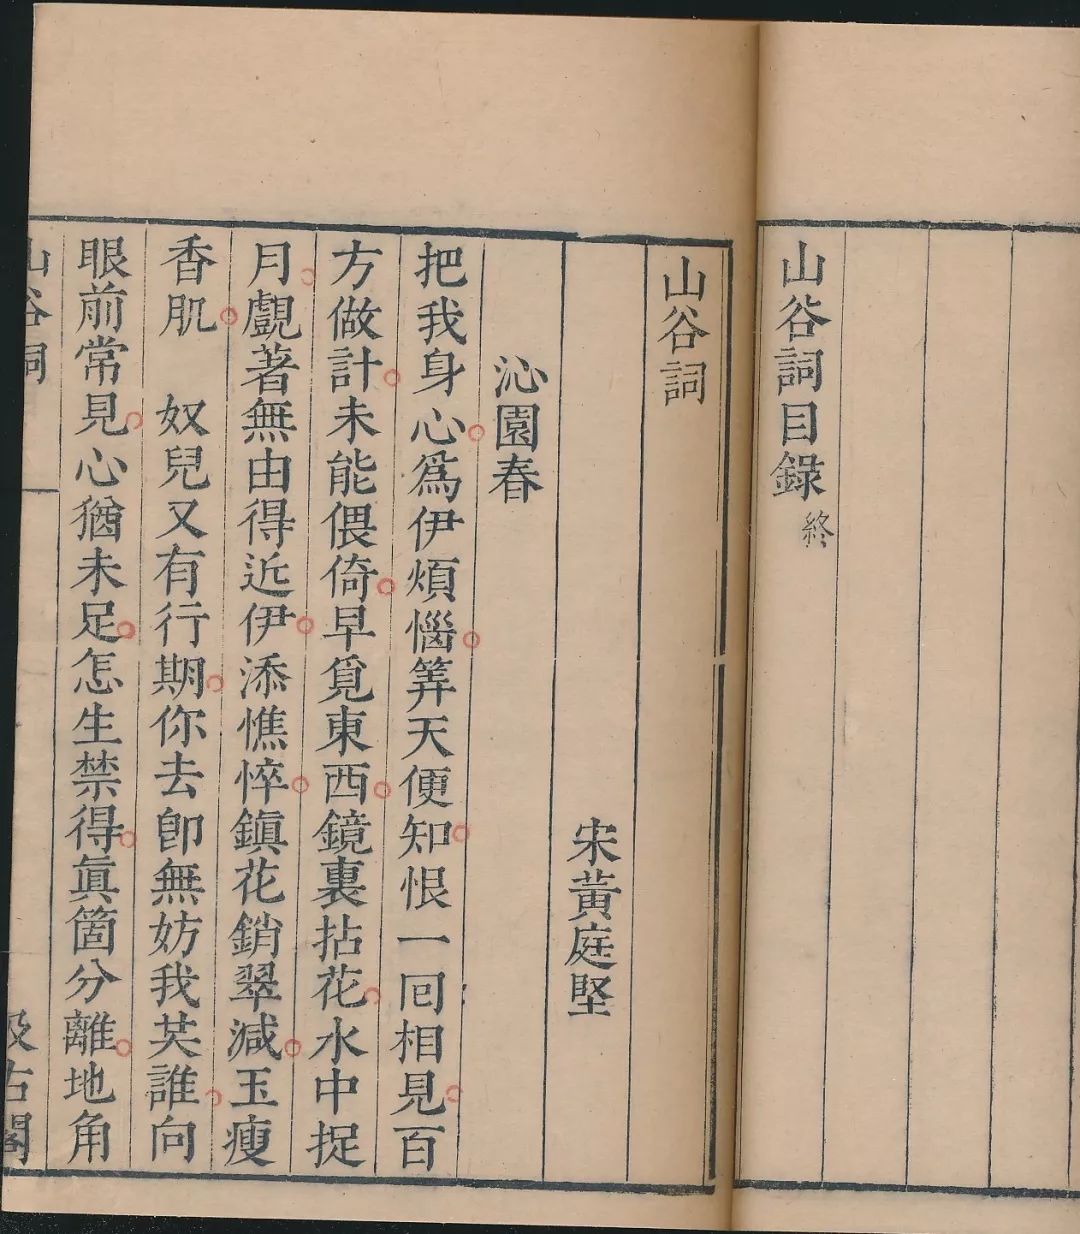 山谷詞目錄終
山谷詞
宋黃庭堅
沁園春
把我身心爲伊煩惱筭天便知恨一囘相見百
方做計未能偎倚早覓東西鏡裏拈花水中捉
月覷著無由得近伊添憔悴鎭花銷翠減玉瘦
香肌　奴兒又有行期你去卽無妨我英誰向
眼前常見心猶未足怎生禁得眞箇分離地角
山谷詞
汲古閣